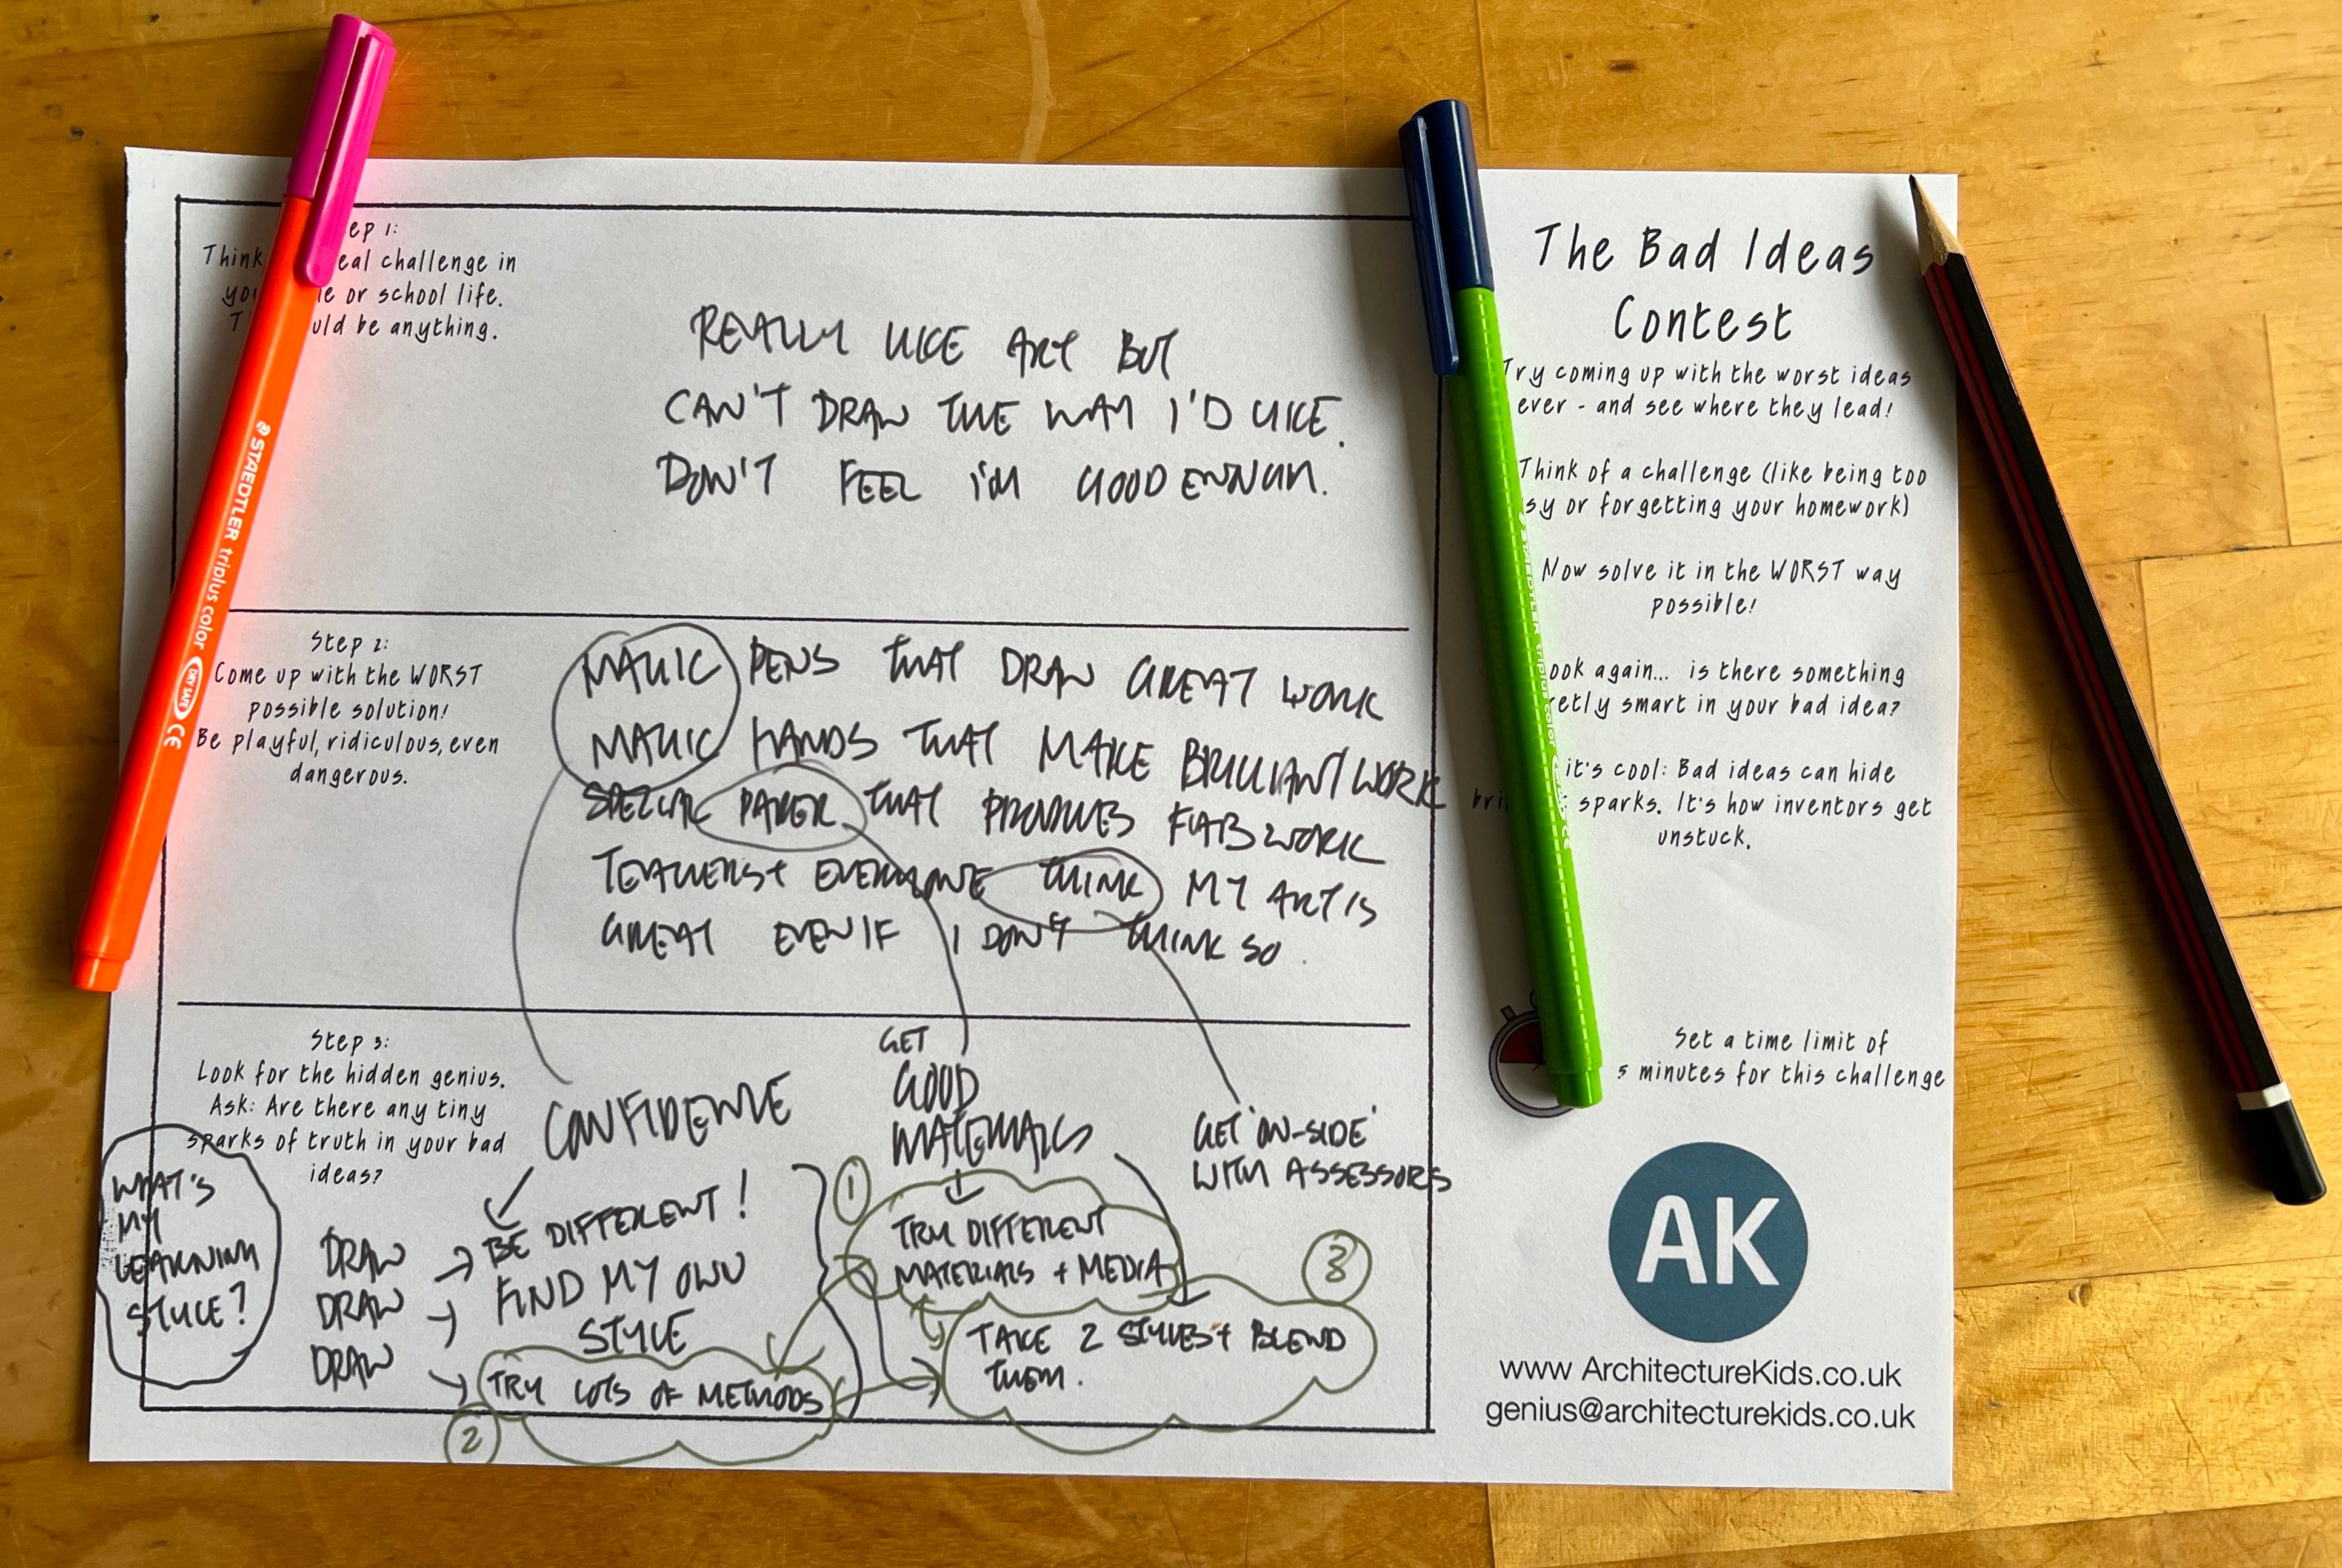 ep 1:
Think eal challenge in
yo e or school life.
T uld be anything.
REALLY LIKE ART BUT
CAN'T DRAW THE WAY I'D LIKE.
DON'T FEEL I'M GOOD ENOUGH.
Step 2:
Come up with the WORST
possible solution!
Be playful, ridiculous, even
dangerous.
MAGIC PENS THAT DRAW GREAT WORK
MAGIC HANDS THAT MAKE BRILLIANT WORK
SPECIAL PAPER THAT PRODUCES FAB WORK
TEACHERS + EVERYONE THINK MY ART IS
GREAT EVEN IF I DON'T THINK SO.
Step 3:
Look for the hidden genius.
Ask: Are there any tiny
sparks of truth in your bad
ideas?
WHAT'S
MY
LEARNING
STYLE?
DRAW
DRAW
DRAW
CONFIDENCE
BE DIFFERENT!
FIND MY OWN
STYLE
TRY LOTS OF METHODS
2
GET
GOOD
MATERIALS
1
TRY DIFFERENT
MATERIALS + MEDIA
GET 'ON-SIDE'
WITH ASSESSORS
3
TAKE 2 STYLES + BLEND
THEM.
STAEDTLER triplus color DRY SAFE CE
STAEDTLER triplus color
The Bad Ideas
Contest
Try coming up with the worst ideas
ever - and see where they lead!
Think of a challenge (like being too
sy or forgetting your homework)
Now solve it in the WORST way
possible!
ook again... is there something
retly smart in your bad idea?
it's cool: Bad ideas can hide
bri sparks. It's how inventors get
unstuck.
Set a time limit of
5 minutes for this challenge
AK
www ArchitectureKids.co.uk
genius@architecturekids.co.uk